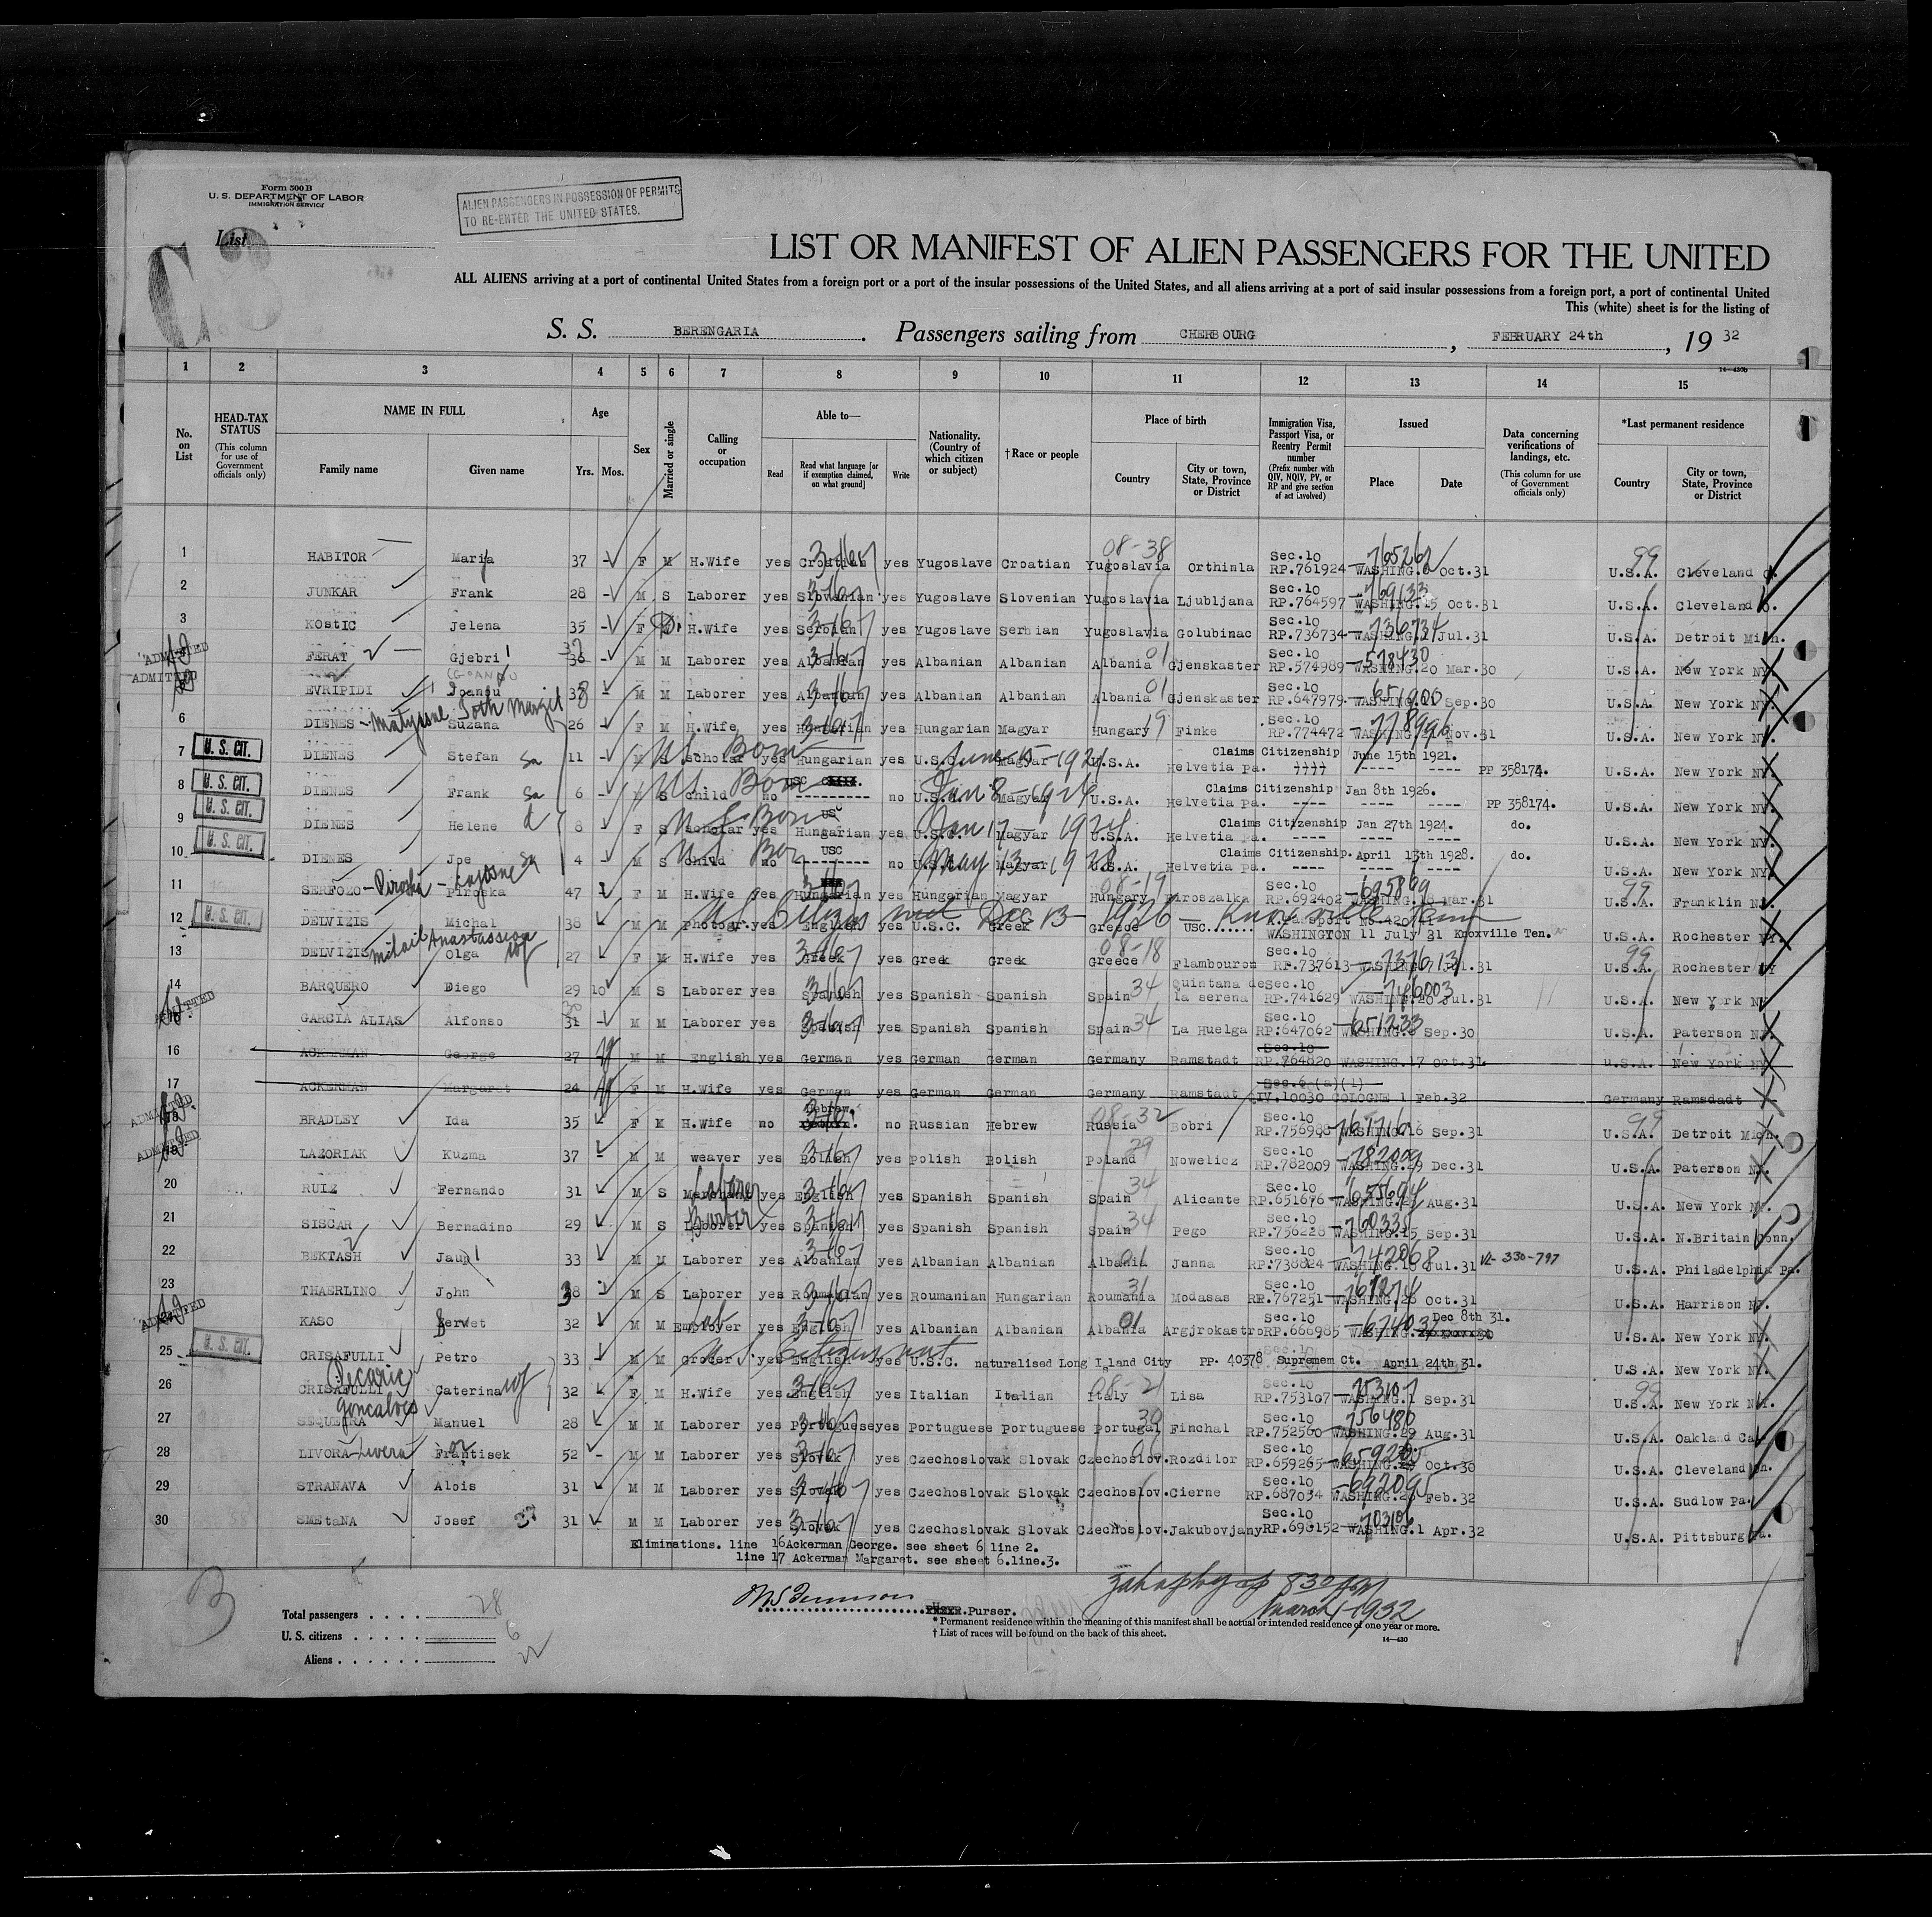 Form 500 B
U. S. DEPARTMENT OF LABOR
IMMIGRATION SERVICE
ALIEN PASSENGERS IN POSSESSION OF PERMITS
TO RE-ENTER THE UNITED STATES.
List
LIST OR MANIFEST OF ALIEN PASSENGERS FOR THE UNITED
ALL ALIENS arriving at a port of continental United States from a foreign port or a port of the insular possessions of the United States, and all aliens arriving at a port of said insular possessions from a foreign port, a port of continental United
This (white) sheet is for the listing of
S. S. BERENGARIA. Passengers sailing from CHERBOURG, FEBRUARY 24th, 19 32
14—430b
1 2 3 4 5 6 7 8 9 10 11 12 13 14 15
No. on List
HEAD-TAX STATUS (This column for use of Government officials only)
NAME IN FULL Family name Given name
Age Yrs. Mos.
Sex
Married or single
Calling or occupation
Able to— Read Read what language [or if exemption claimed, on what ground] Write
Nationality. (Country of which citizen or subject)
†Race or people
Place of birth Country City or town, State, Province or District
Immigration Visa, Passport Visa, or Reentry Permit number (Prefix number with QIV, NQIV, PV, or RP and give section of act involved)
Issued Place Date
Data concerning verifications of landings, etc. (This column for use of Government officials only)
*Last permanent residence Country City or town, State, Province or District
1 HABITOR Marija 37 - F M H.Wife yes Croatian yes Yugoslave Croatian 08-38 Yugoslavia Orthinla Sec.10 RP.761924 765262 WASHING. Oct.31 99 U.S.A. Cleveland O.
2 JUNKAR Frank 28 - M S Laborer yes Slovenian yes Yugoslave Slovenian Yugoslavia Ljubljana Sec.10 RP.764597 769133 WASHING.15 Oct.31 U.S.A. Cleveland O.
3 KOSTIC Jelena 35 - F H.Wife yes Serbian yes Yugoslave Serbian Yugoslavia Golubinac Sec.10 RP.736734 736734 WASHING. Jul.31 U.S.A. Detroit Mich.
ADMITTED FERAT Gjebri 36 - M M Laborer yes Albanian yes Albanian Albanian Albania 01 Gjenskaster Sec.10 RP.574989 578430 WASHING.20 Mar.30 U.S.A. New York NY.
ADMITTED EVRIPIDI Joanou 38 - M M Laborer yes Albanian yes Albanian Albanian Albania 01 Gjenskaster Sec.10 RP.647979 651900 WASHING. Sep.30 U.S.A. New York NY.
6 DIENES - Matyasne Toth Margit Suzana 26 - F M H.Wife yes Hungarian yes Hungarian Magyar Hungary 19 Finke Sec.10 RP.774472 778996 WASHING. Nov.31 U.S.A. New York NY.
7 U. S. CIT. DIENES Stefan 11 - M S Scholar yes Hungarian yes U.S.C. Magyar U.S. Born June 15-1921 U.S.A. Helvetia pa. Claims Citizenship June 15th 1921. PP 358174. U.S.A. New York NY.
8 U. S. CIT. DIENES Frank 6 - M S Child no USC no U.S.C. Magyar U.S. Born Jan 8-1926 U.S.A. Helvetia pa. Claims Citizenship Jan 8th 1926. PP 358174. U.S.A. New York NY.
9 U. S. CIT. DIENES Helene 8 - F S Scholar yes Hungarian USC yes U.S.C. Magyar U.S. Born 1924 U.S.A. Helvetia pa. Claims Citizenship Jan 27th 1924. do. U.S.A. New York NY.
10 U. S. CIT. DIENES Joe 4 - M S Child no USC no U.S.C. Magyar May 13-1928 U.S.A. Helvetia pa. Claims Citizenship. April 13th 1928. do. U.S.A. New York NY.
11 SERFOZO - Piroska - Lajosne Piroska 47 F M H.Wife yes Hungarian yes Hungarian Magyar 08-19 Hungary Piroszalka Sec.10 RP.692402 695899 WASHING.18 Mar.31 99 U.S.A. Franklin NJ.
12 U. S. CIT. DELVIZIS Michal 38 M M Photogr. yes English yes U.S.C. Greek Greece U.S. Citizen nat Dec 13-1926 - Knoxville Tenn USC....... WASHINGTON 11 July 31 Knoxville Ten. U.S.A. Rochester NY.
13 DELVIZIS Mihail Anastassion Olga 27 F M H.Wife yes Greek yes Greek Greek 08-18 Greece Flambouron Sec.10 RP.737613 737613 WASHING. Jul.31 99 U.S.A. Rochester NY
14 BARQUERO Diego 29 10 M S Laborer yes Spanish yes Spanish Spanish Spain 34 Quintana de la serena Sec.10 RP.741629 746003 WASHING.20 Jul.31 U.S.A. New York NY
ADMITTED GARCIA ALIAS Alfonso 31 - M M Laborer yes Spanish yes Spanish Spanish Spain 34 La Huelga Sec.10 RP.647062 651233 WASHING. Sep.30 U.S.A. Paterson NJ.
16 ACKERMAN George 27 M M English yes German yes German German Germany Ramstadt Sec.10 RP.764620 WASHING.17 Oct.31 U.S.A. New York NY
17 ACKERMAN Margaret 24 F M H.Wife yes German yes German German Germany Ramstadt Sec.6 (a)(1) IV.10030 COLOGNE 1 Feb.32 Germany Ramsdadt
ADMITTED 18 BRADLEY Ida 35 F M H.Wife no Hebrew. no Russian Hebrew 08-32 Russia Bobri Sec.10 RP.756988 WASHING.16 Sep.31 99 U.S.A. Detroit Mich.
ADMITTED 19 LAZORIAK Kuzma 37 - M M weaver yes Polish yes Polish Polish Poland 29 Nowelicz Sec.10 RP.782009 782009 WASHING.29 Dec.31 U.S.A. Paterson NJ.
20 RUIZ Fernando 31 M S Merchant Laborer yes English yes Spanish Spanish Spain 34 Alicante Sec.10 RP.651676 655694 WASHING. Aug.31 U.S.A. New York NY.
21 SISCAR Bernadino 29 M S Laborer Barber yes Spanish yes Spanish Spanish Spain 34 Pego Sec.10 RP.756228 760335 WASHING.15 Sep.31 U.S.A. N.Britain Conn.
22 BEKTASH Jaup 33 M M Laborer yes Albanian yes Albanian Albanian Albania 01 Janna Sec.10 RP.738824 742068 WASHING.18 Jul.31 VL-330-797 U.S.A. Philadelphia Pa.
23 THAERLINO John 38 M S Laborer yes Roumanian yes Roumanian Hungarian Roumania 31 Modasas Sec.10 RP.767251 WASHING.26 Oct.31 U.S.A. Harrison NY.
ADMITTED KASO Servet 32 M M Employer Lab yes English yes Albanian Albanian Albania 01 Argjrokastro Sec.10 RP.666985 WASHING. Dec 8th 31. U.S.A. New York NY.
25 U. S. CIT. CRISAFULLI Petro 33 M M Grocer yes English yes U.S.C. U.S. Citizen nat naturalised Long Island City PP. 40378 Supremem Ct. April 24th 31. U.S.A. New York NY.
26 CRISAFULLI Pecaric Caterina wf 32 F M H.Wife yes English yes Italian Italian Italy 08-21 Lisa Sec.10 RP.753107 753107 WASHING.1 Sep.31 99 U.S.A. New York NY.
27 SEQUEIRA Goncalves Manuel 28 M M Laborer yes Portuguese yes Portuguese Portuguese Portugal 30 Finchal Sec.10 RP.752560 756480 WASHING.29 Aug.31 U.S.A. Oakland Cal.
28 LIVORA - Livera Frantisek 52 - M M Laborer yes Slovak yes Czechoslovak Slovak Czechoslov. 06 Rozdilor Sec.10 RP.659265 WASHING. Oct.30 U.S.A. Cleveland Oh.
29 STRANAVA Alois 31 M M Laborer yes Slovak yes Czechoslovak Slovak Czechoslov. Cierne Sec.10 RP.687034 692095 WASHING. Feb.32 U.S.A. Sudlow Pa.
30 SMEtaNA Josef 31 M M Laborer yes Slovak yes Czechoslovak Slovak Czechoslov. Jakubovjany Sec.10 RP.698152 703106 WASHING.1 Apr.32 U.S.A. Pittsburg Pa.
Eliminations. line 16 Ackerman George. see sheet 6 line 2.
line 17 Ackerman Margaret. see sheet 6.line.3.
Total passengers . . . . 28
U. S. citizens . . . . . 6
Aliens . . . . . . 22
Purser.
830 PM
March 1-1932
* Permanent residence within the meaning of this manifest shall be actual or intended residence of one year or more.
† List of races will be found on the back of this sheet.
14—430